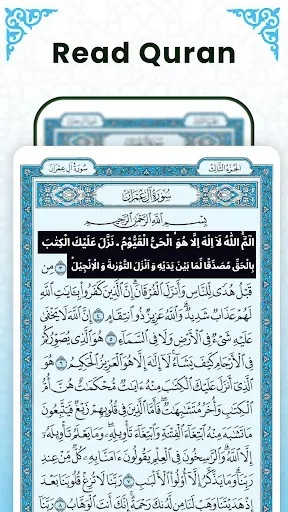 Read Quran
سُورَةُ آلِ عِمْرَانَ
الجُزْءُ الثَّالِثُ
سُورَةُ آلِ عِمْرَانَ
بِسْمِ اللَّهِ الرَّحْمَٰنِ الرَّحِيمِ
الٓمّٓ اللّٰهُ لَاۤ اِلٰهَ اِلَّا هُوَ الْحَیُّ الْقَیُّوْمُ ، نَزَّلَ عَلَیْكَ الْكِتٰبَ
بِالْحَقِّ مُصَدِّقًا لِّمَا بَیْنَ یَدَیْهِ وَ اَنْزَلَ التَّوْرٰىةَ وَ الْاِنْجِیْلَ ٣ مِن
قَبْلُ هُدًى لِّلنَّاسِ وَأَنزَلَ الْفُرْقَانَ إِنَّ الَّذِينَ كَفَرُوا بِـَٔايَٰتِ اللَّهِ
لَهُمْ عَذَابٌ شَدِيدٌ وَاللَّهُ عَزِيزٌ ذُو انتِقَامٍ ٤ إِنَّ اللَّهَ لَا يَخْفَىٰ
عَلَيْهِ شَىْءٌ فِى الْأَرْضِ وَلَا فِى السَّمَآءِ ٥ هُوَ الَّذِى يُصَوِّرُكُمْ
فِى الْأَرْحَامِ كَيْفَ يَشَآءُ لَآ إِلَٰهَ إِلَّا هُوَ الْعَزِيزُ الْحَكِيمُ ٦
هُوَ الَّذِىٓ أَنزَلَ عَلَيْكَ الْكِتَٰبَ مِنْهُ ءَايَٰتٌ مُّحْكَمَٰتٌ هُنَّ أُمُّ
الْكِتَٰبِ وَأُخَرُ مُتَشَٰبِهَٰتٌ فَأَمَّا الَّذِينَ فِى قُلُوبِهِمْ زَيْغٌ فَيَتَّبِعُونَ
مَا تَشَٰبَهَ مِنْهُ ابْتِغَآءَ الْفِتْنَةِ وَابْتِغَآءَ تَأْوِيلِهِ وَمَا يَعْلَمُ تَأْوِيلَهُٓ
إِلَّا اللَّهُ وَالرَّٰسِخُونَ فِى الْعِلْمِ يَقُولُونَ ءَامَنَّا بِهِ كُلٌّ مِّنْ عِندِ
رَبِّنَا وَمَا يَذَّكَّرُ إِلَّآ أُولُوا الْأَلْبَٰبِ ٧ رَبَّنَا لَا تُزِغْ قُلُوبَنَا بَعْدَ
إِذْ هَدَيْتَنَا وَهَبْ لَنَا مِن لَّدُنكَ رَحْمَةً إِنَّكَ أَنتَ الْوَهَّابُ ٨ رَبَّنَآ